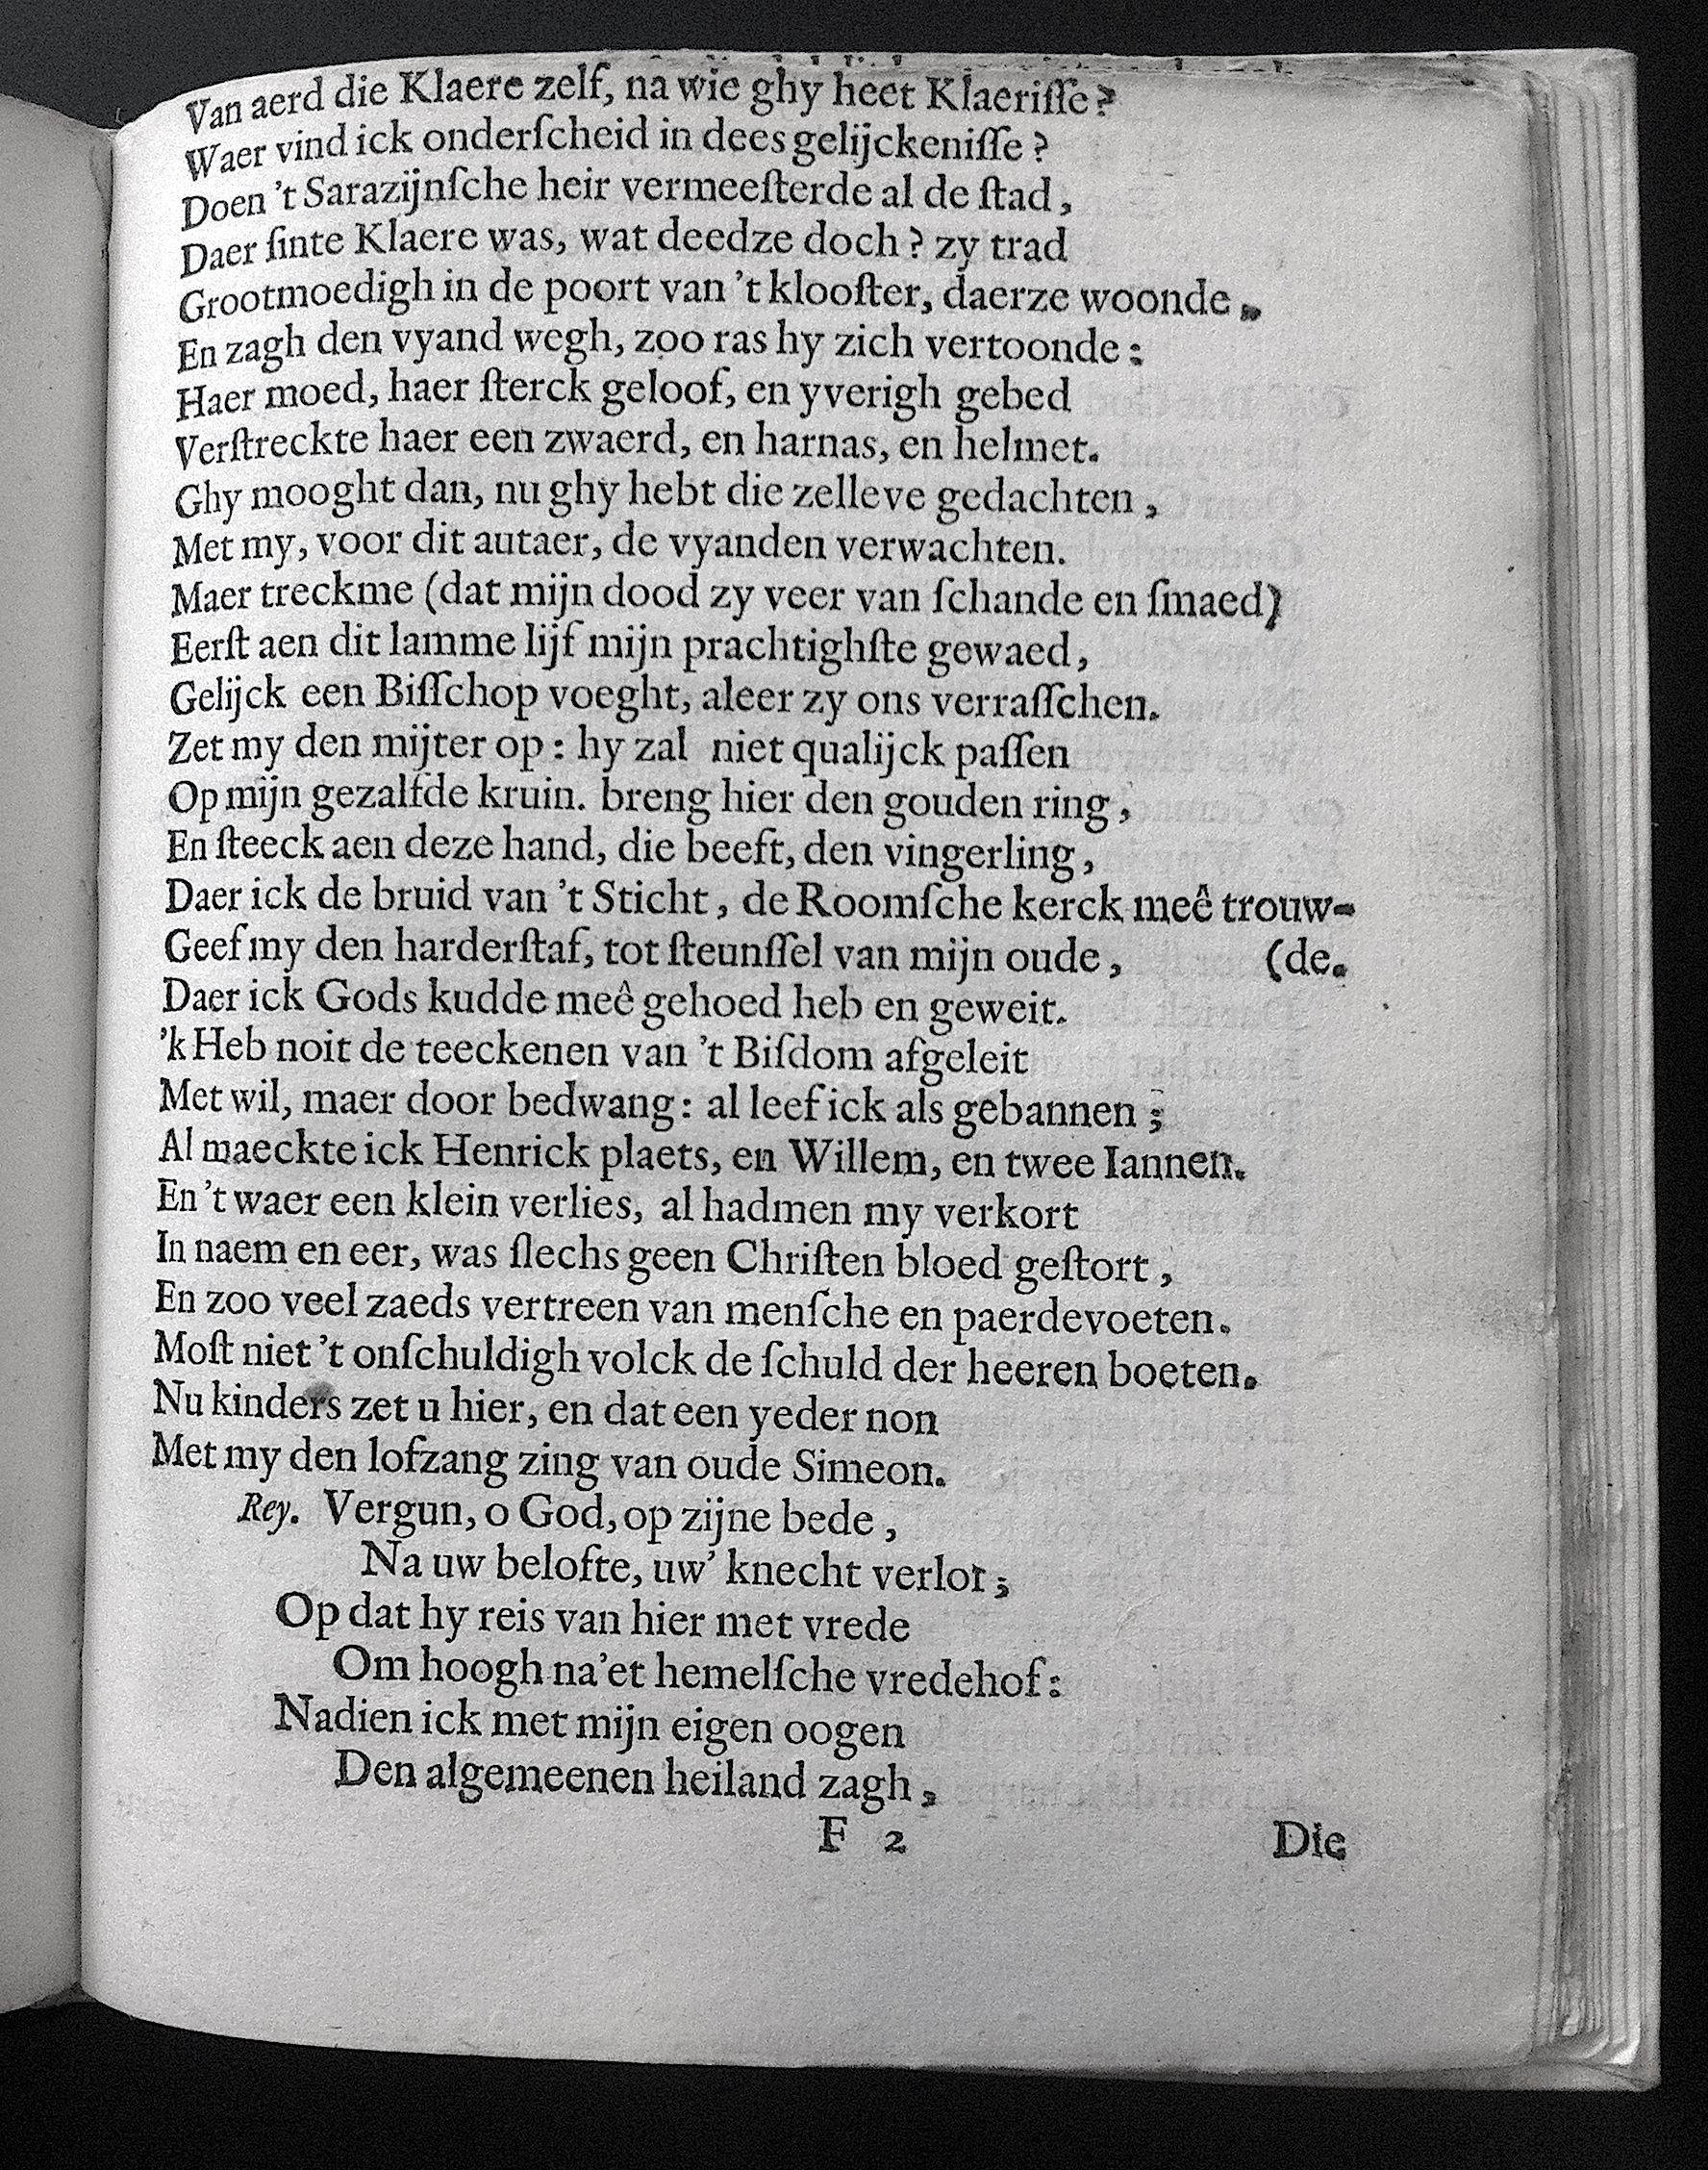 Van aerd die Klaere zelf, na wie ghy heet Klaeriſſe?
Waer vind ick onderſcheid in dees gelijckeniſſe?
Doen 't Sarazijnſche heir vermeeſterde al de ſtad,
Daer ſinte Klaere was, wat deedze doch? zy trad
Grootmoedigh in de poort van 't klooſter, daerze woonde,
En zagh den vyand wegh, zoo ras hy zich vertoonde:
Haer moed, haer ſterck geloof, en yverigh gebed
Verſtreckte haer een zwaerd, en harnas, en helmet.
Ghy mooght dan, nu ghy hebt die zelleve gedachten,
Met my, voor dit autaer, de vyanden verwachten.
Maer treckme (dat mijn dood zy veer van ſchande en ſmaed)
Eerſt aen dit lamme lijf mijn prachtighſte gewaed,
Gelijck een Biſſchop voeght, aleer zy ons verraſſchen.
Zet my den mijter op: hy zal niet qualijck paſſen
Op mijn gezalfde kruin. breng hier den gouden ring,
En ſteeck aen deze hand, die beeft, den vingerling,
Daer ick de bruid van 't Sticht, de Roomſche kerck meê trouw-
Geef my den harderſtaf, tot ſteunſſel van mijn oude, (de.
Daer ick Gods kudde meê gehoed heb en geweit.
'k Heb noit de teeckenen van 't Biſdom afgeleit
Met wil, maer door bedwang: al leef ick als gebannen;
Al maeckte ick Henrick plaets, en Willem, en twee Iannen.
En 't waer een klein verlies, al hadmen my verkort
In naem en eer, was ſlechs geen Chriſten bloed geſtort,
En zoo veel zaeds vertreen van menſche en paerdevoeten.
Moſt niet 't onſchuldigh volck de ſchuld der heeren boeten.
Nu kinders zet u hier, en dat een yeder non
Met my den lofzang zing van oude Simeon.
Rey. Vergun, o God, op zijne bede,
Na uw belofte, uw' knecht verlof;
Op dat hy reis van hier met vrede
Om hoogh na'et hemelſche vredehof:
Nadien ick met mijn eigen oogen
Den algemeenen heiland zagh,
F 2 Die